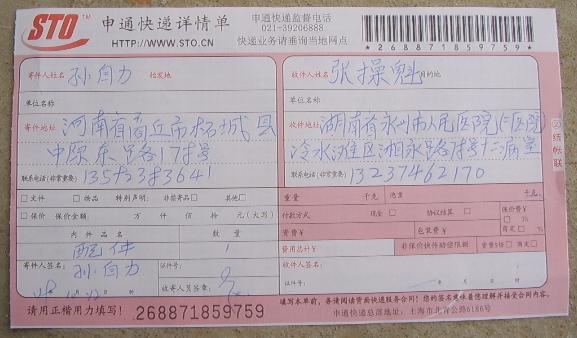 STO 申通快递详情单 申通快递监督电话
HTTP://WWW.STO.CN 021-39206888
快递业务请垂询当地网点 *268871859759*
寄件人姓名 孙自力 始发地 收件人姓名 张操魁 目的地
单位名称 单位名称
寄件地址 河南省商丘市柘城县 收件地址 湖南省永州市人民医院(二医院)
中原东路 冷水滩区湘永路
联系电话(非常重要) 联系电话(非常重要) 13237462170
□文件 □物品 特别声明: 非禁寄品□ 其他□ 重量 千克
□保价 保价金额: 万 仟 佰 拾 元(大写) 付款方式 现金□ 协议结算□ 保价费
内件品名 数量 资费¥ 包装费¥
配件 1 费用总计¥ 非保价快件赔偿限额
寄件人签名: 孙自力 证件号: 收件人签名:
收寄人员签章: 证件号:
年 月 日
请用正楷用力填写! 268871859759 填写本单前,务请阅读背面快递服务合同! 您的签名意味着您理解并接受合同内容。
申通快递总部地址: 上海市北青公路6186号
结帐联